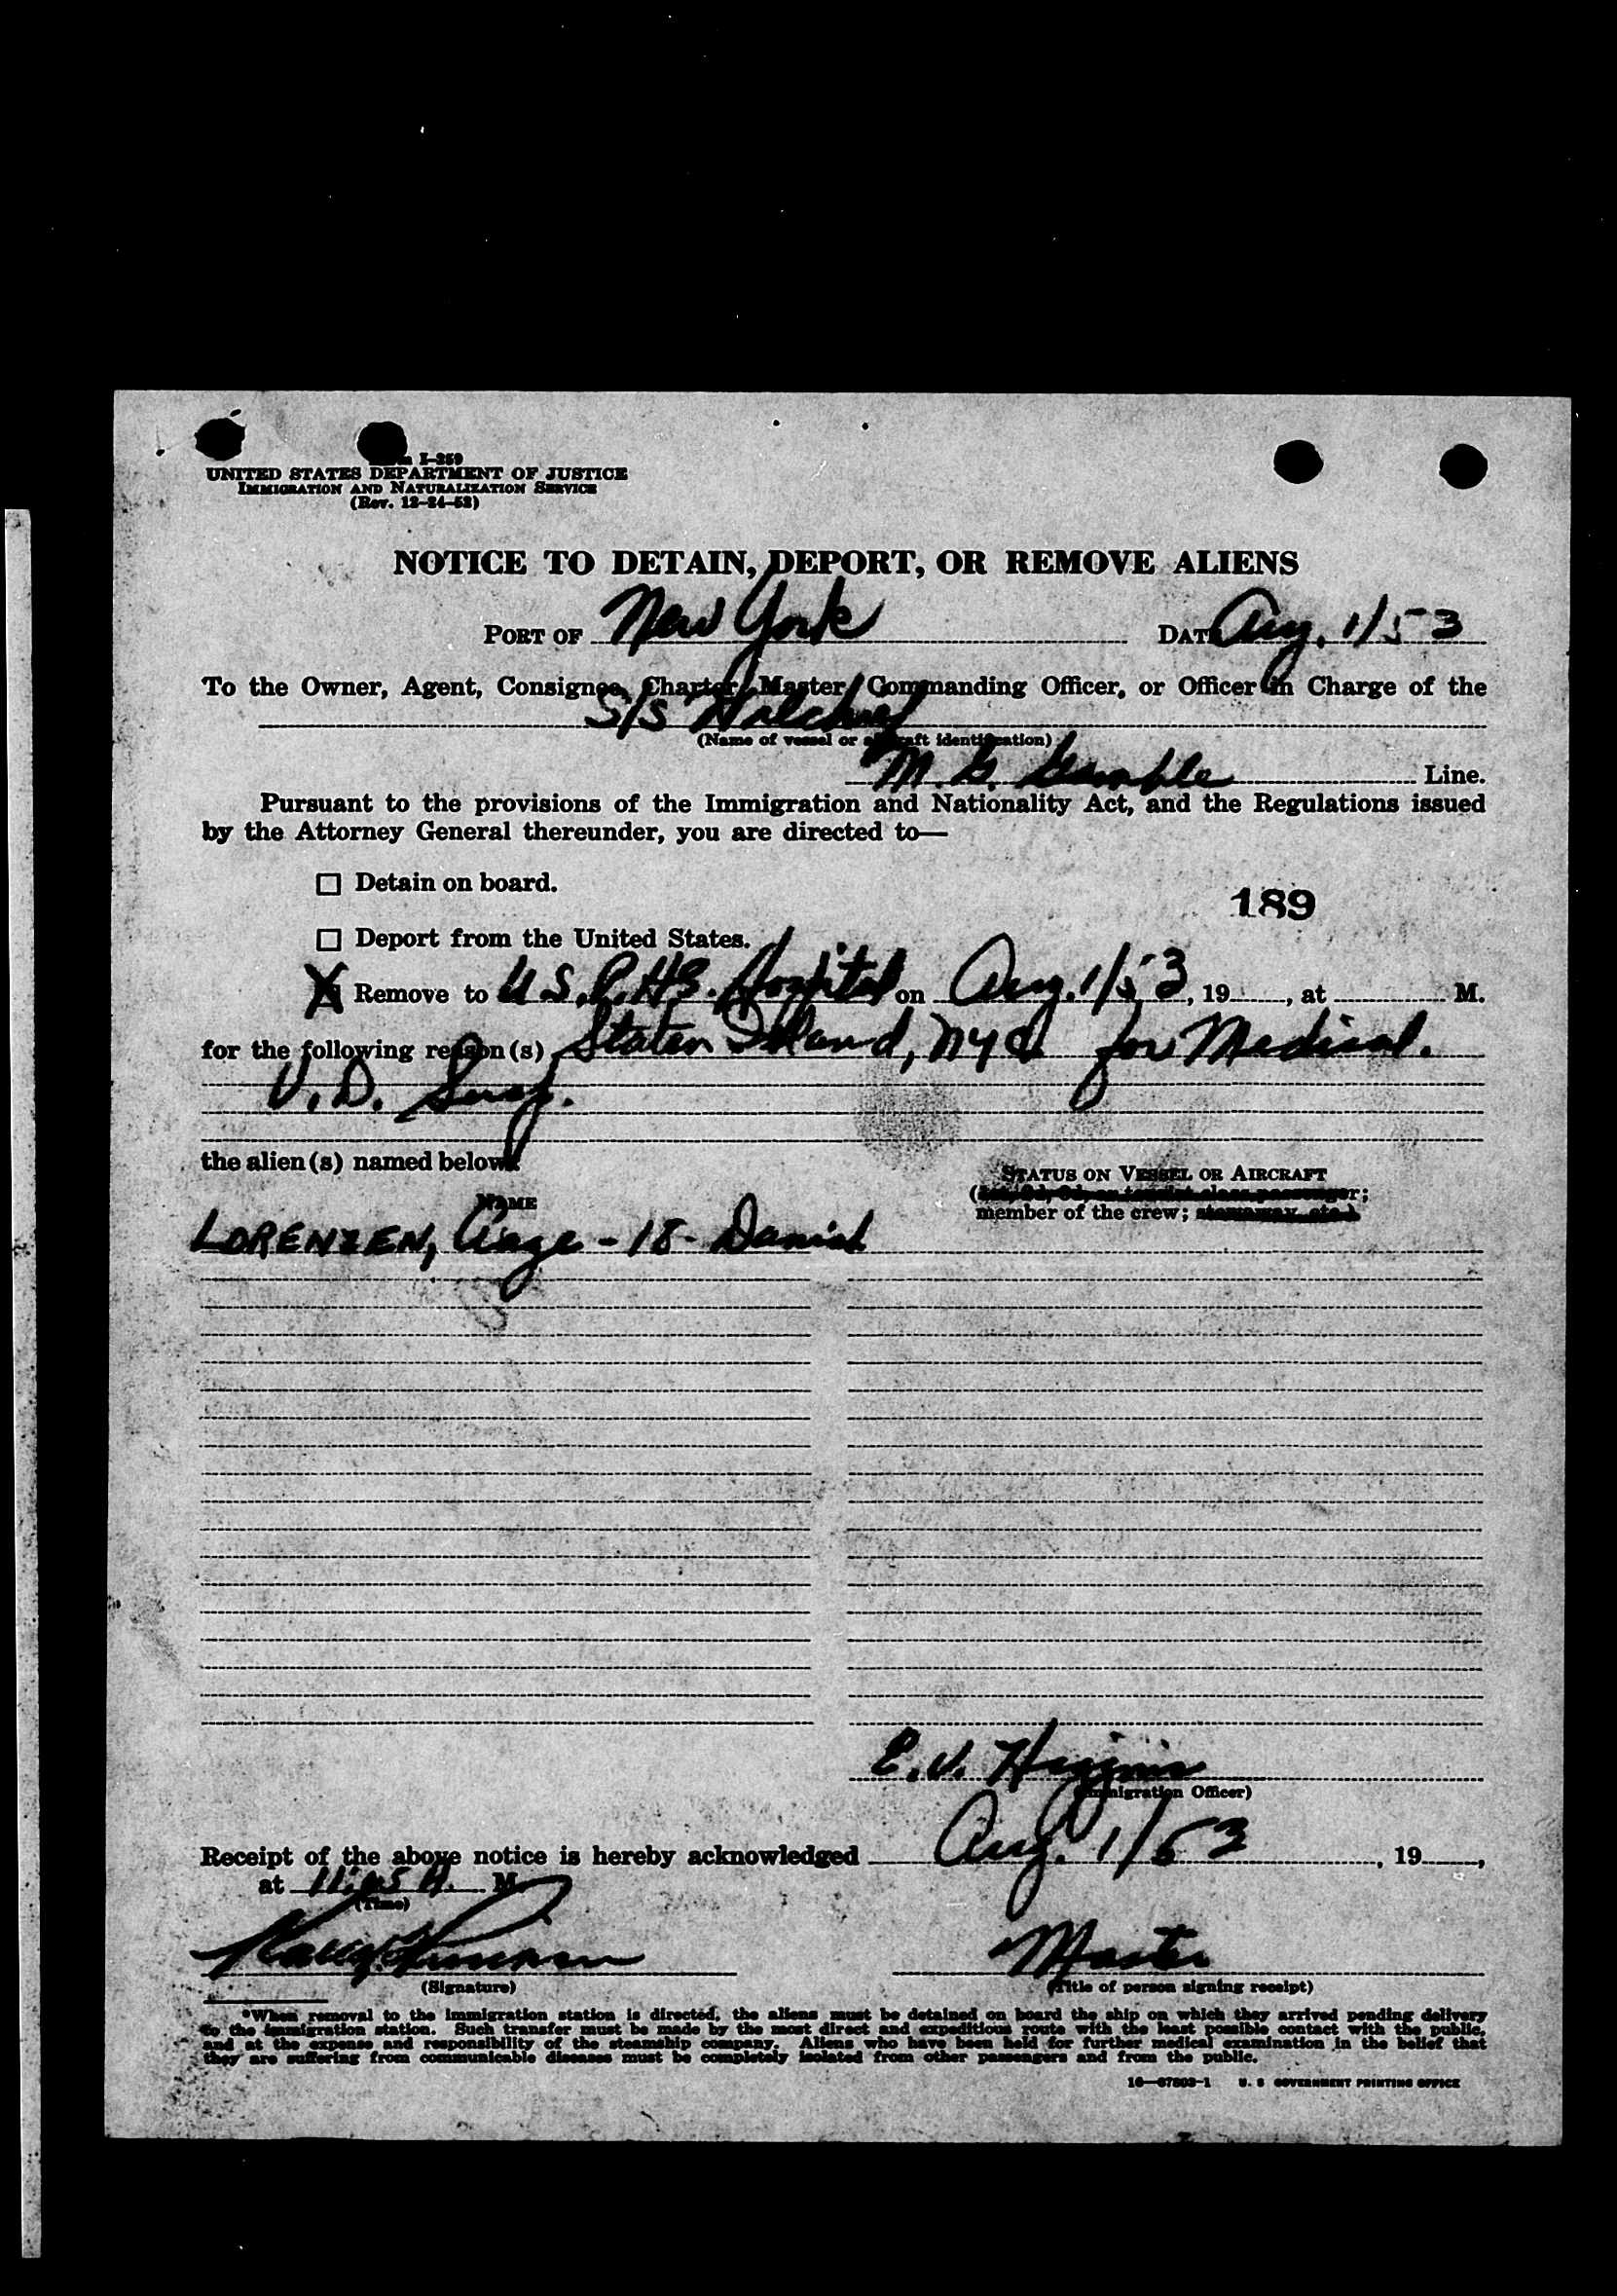 I-259
UNITED STATES DEPARTMENT OF JUSTICE
IMMIGRATION AND NATURALIZATION SERVICE
(Rev. 12-24-52)
NOTICE TO DETAIN, DEPORT, OR REMOVE ALIENS
PORT OF New York DATE Aug. 1/53
To the Owner, Agent, Consignee, Charter, Master, Commanding Officer, or Officer in Charge of the
S/S
(Name of vessel or aircraft identification)
M. G. Gamble Line.
Pursuant to the provisions of the Immigration and Nationality Act, and the Regulations issued
by the Attorney General thereunder, you are directed to—
☐ Detain on board.
189
☐ Deport from the United States.
X Remove to U.S.P.H.S. Hospital on Aug. 1/53, 19____, at ____ M.
for the following reason(s) Staten Island, NYC for Medical.
V.D. Susp.
the alien(s) named below:
STATUS ON VESSEL OR AIRCRAFT
(1st, 2d, 3d, or tourist class passenger;
NAME
member of the crew; stowaway, etc.)
LORENZEN, Aage - 18 - Danish
E. V. Higgins
(Immigration Officer)
Receipt of the above notice is hereby acknowledged Aug. 1/53, 19____,
at 11:05 A. M.
(Time)
Master
(Signature) (Title of person signing receipt)
*When removal to the immigration station is directed, the aliens must be detained on board the ship on which they arrived pending delivery
to the immigration station. Such transfer must be made by the most direct and expeditious route with the least possible contact with the public,
and at the expense and responsibility of the steamship company. Aliens who have been held for further medical examination in the belief that
they are suffering from communicable diseases must be completely isolated from other passengers and from the public.
16—67803-1 U. S. GOVERNMENT PRINTING OFFICE